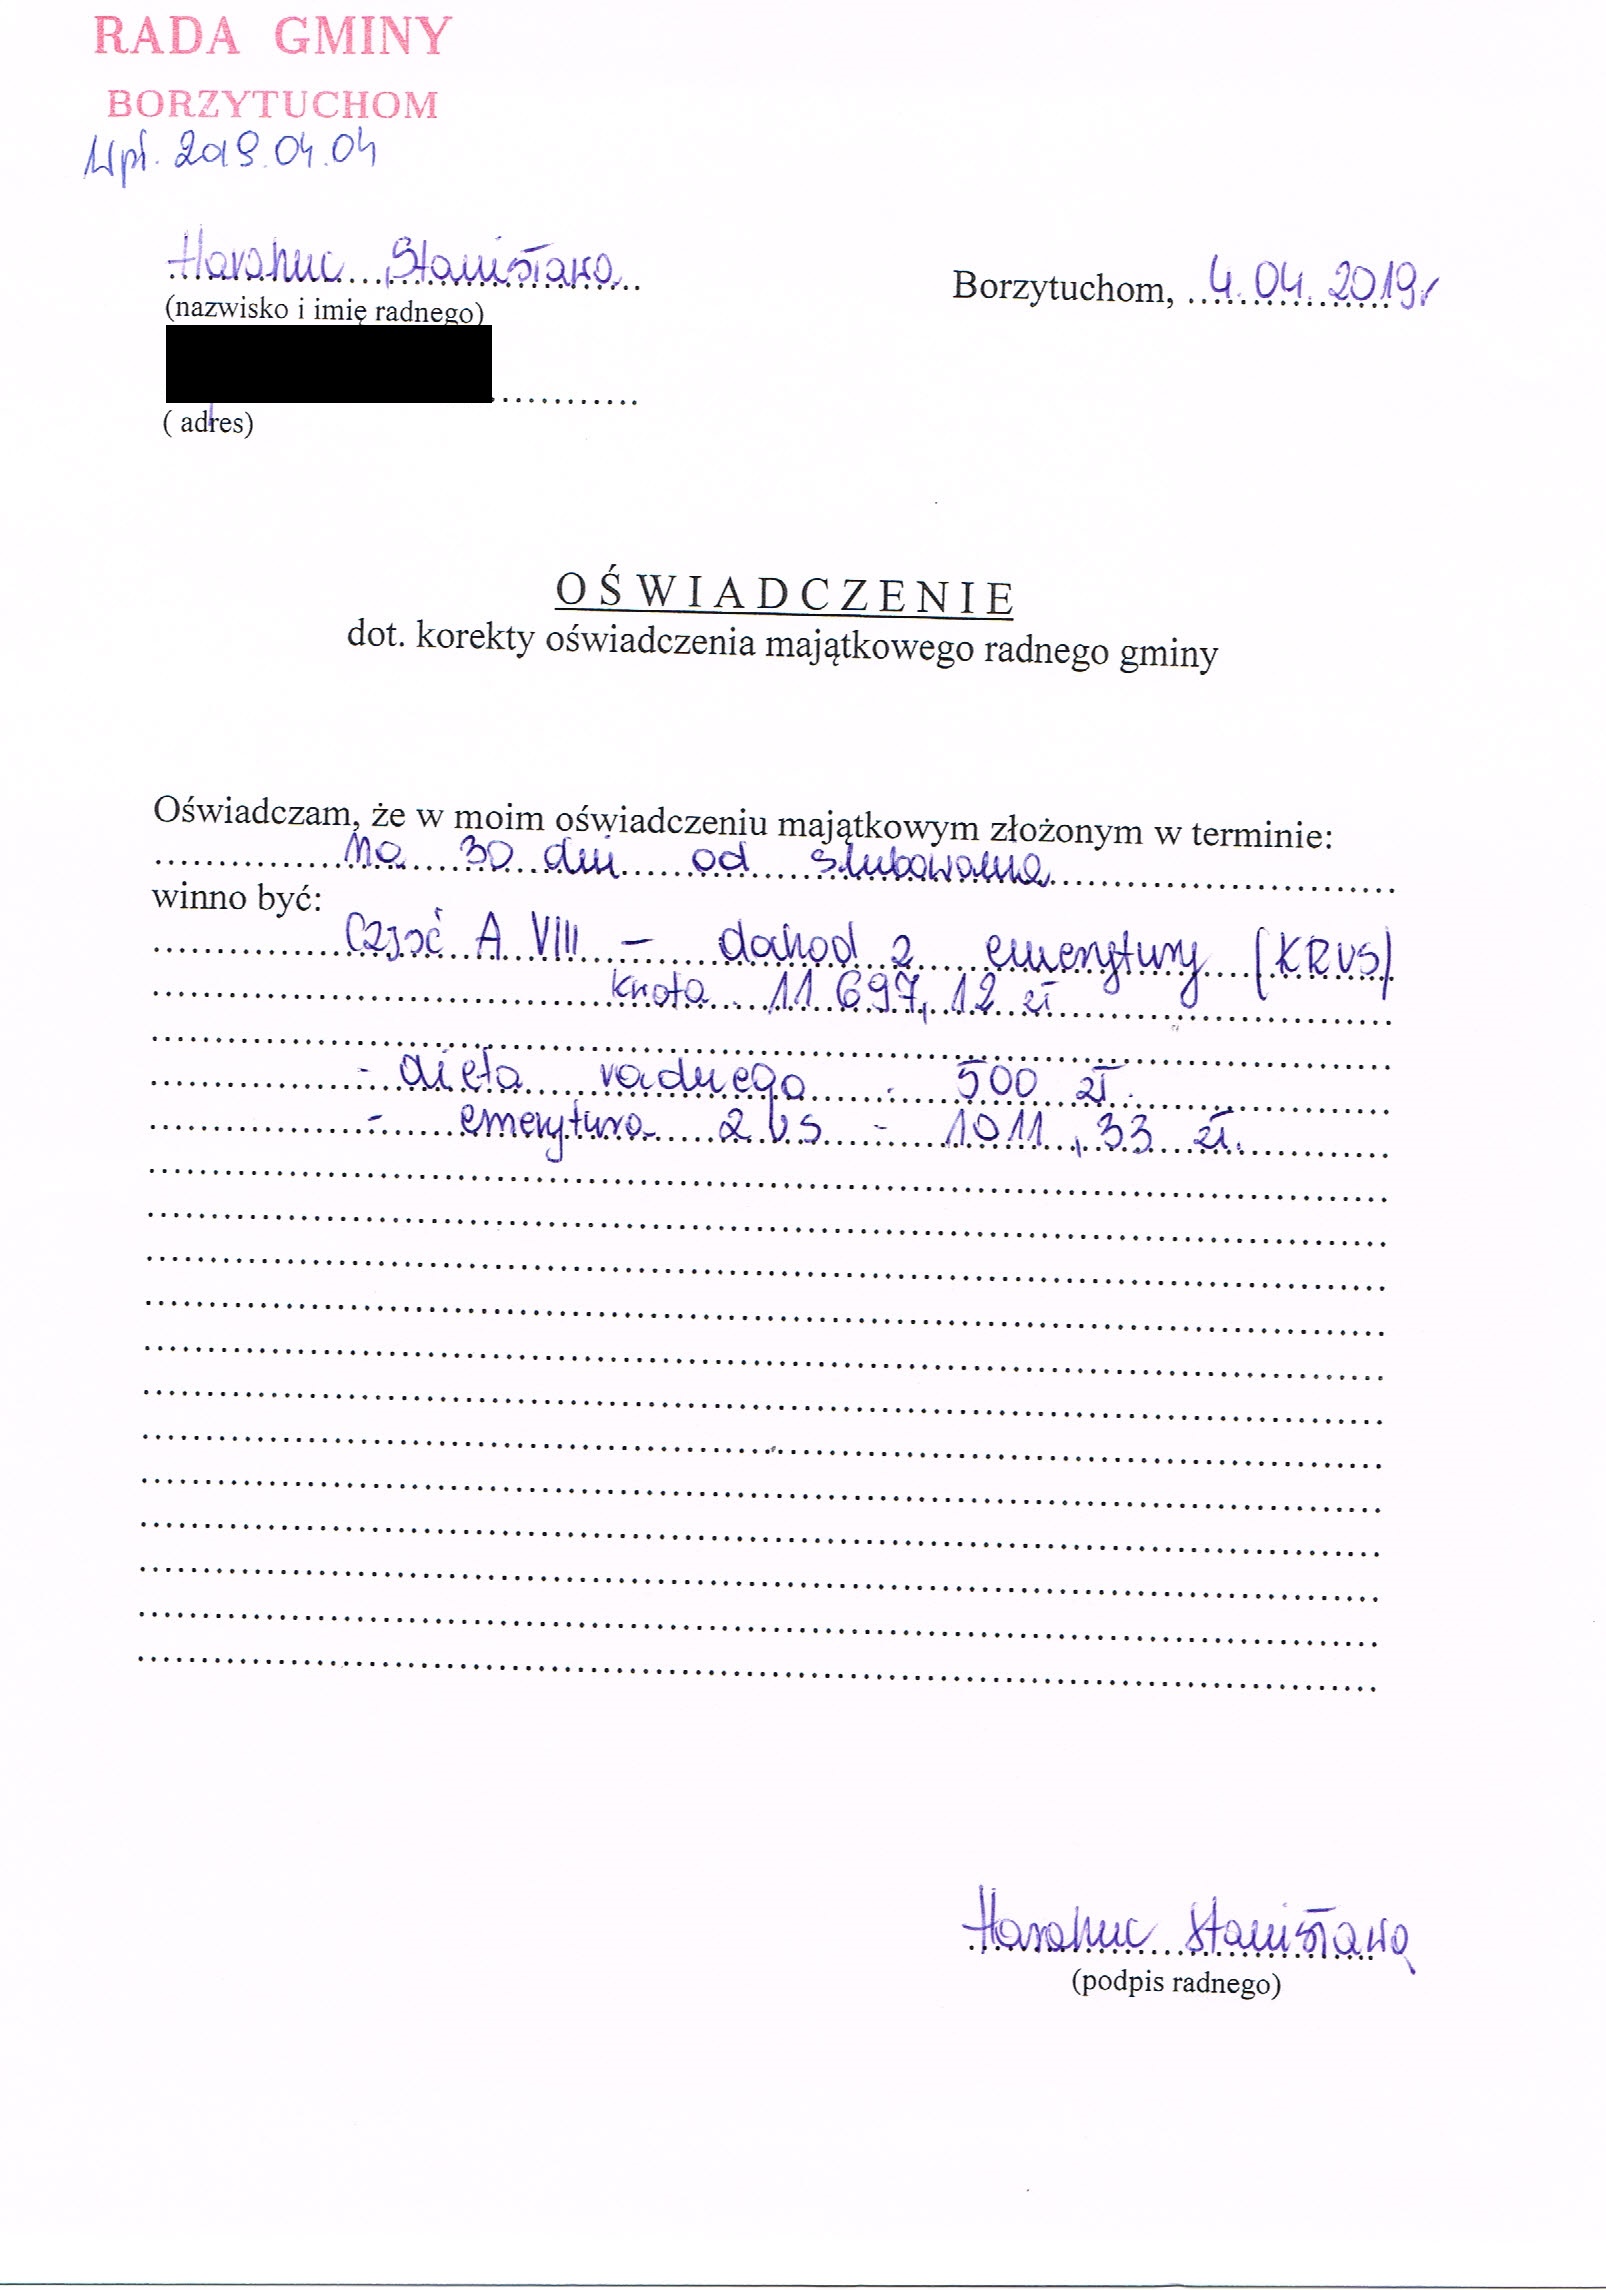 RADA GMINY
BORZYTUCHOM
Wpł. 2019.04.04
Harahuc Stanisława
(nazwisko i imię radnego)
Borzytuchom, 4.04.2019r
( adres)
OŚWIADCZENIE
dot. korekty oświadczenia majątkowego radnego gminy
Oświadczam, że w moim oświadczeniu majątkowym złożonym w terminie:
na 30 dni od ślubowania
winno być:
Część A VIII – dochód z emerytury (KRUS)
kwota 11 697,12 zł
- dieta radnego - 500 zł.
- emerytura ZUS - 1011,33 zł.
Harahuc Stanisława
(podpis radnego)